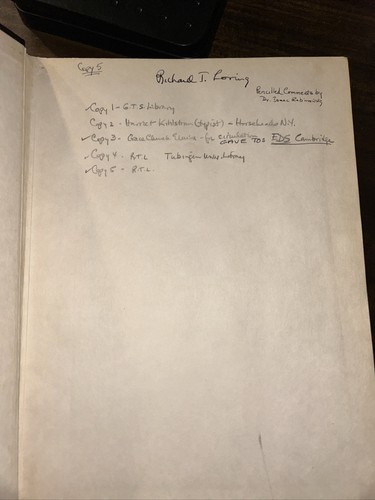 Copy 5
Richard T. Loring
by
Dr. Isaac
Copy 1 - G.T.S. Library
Copy 2 - Harriet Kihlstrom (typist) - Horseheads N.Y.
Copy 3 - - for circulation GAVE TO EDS Cambridge
Copy 4 - R.T.L. Tubingen Univ. Library
Copy 5 - R.T.L.